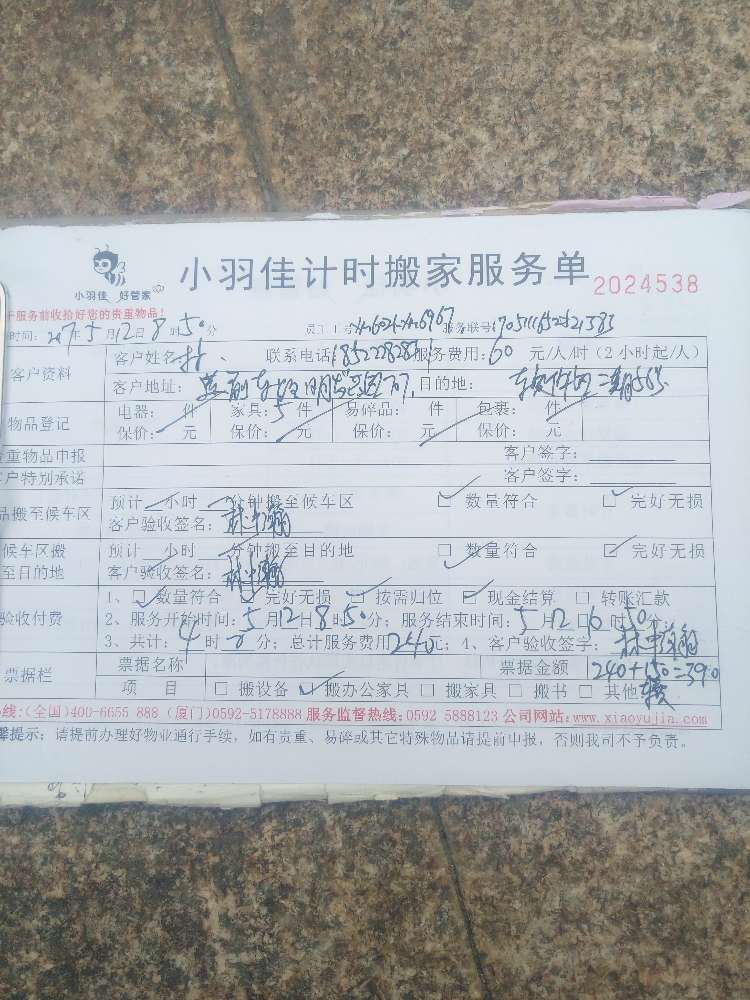 小羽佳 好管家
小羽佳计时搬家服务单 2024538
服务前收拾好您的贵重物品!
时间: 2017年5月12日8时50分 员工工号 服务联号
客户资料
客户姓名: 林 联系电话 服务费用: 60 元/人/时 (2小时起/人)
客户地址: 目的地:
物品登记
电器: 件 家具: 5件 易碎品: 件 包裹: 件
保价: 元 保价: 元 保价: 元 保价: 元
重物品申报 客户签字:
户特别承诺 客户签字:
品搬至候车区
预计 小时 分钟搬至候车区 □ 数量符合 □ 完好无损
客户验收签名:
候车区搬至目的地
预计 小时 分钟搬至目的地 □ 数量符合 □ 完好无损
客户验收签名:
验收付费
1、□ 数量符合 □ 完好无损 □ 按需归位 □ 现金结算 □ 转账汇款
2、服务开始时间: 5月12日8时50分; 服务结束时间: 5月12日 时50
3、共计: 4时0分; 总计服务费用240元; 4、客户验收签字:
票据栏
票据名称 票据金额 240+150=390
项 目 □ 搬设备 □ 搬办公家具 □ 搬家具 □ 搬书 □ 其他
线:(全国)400-6655 888 (厦门)0592-5178888 服务监督热线:0592 5888123 公司网站:www.xiaoyujia.com
馨提示: 请提前办理好物业通行手续, 如有贵重、易碎或其它特殊物品请提前申报, 否则我司不予负责。